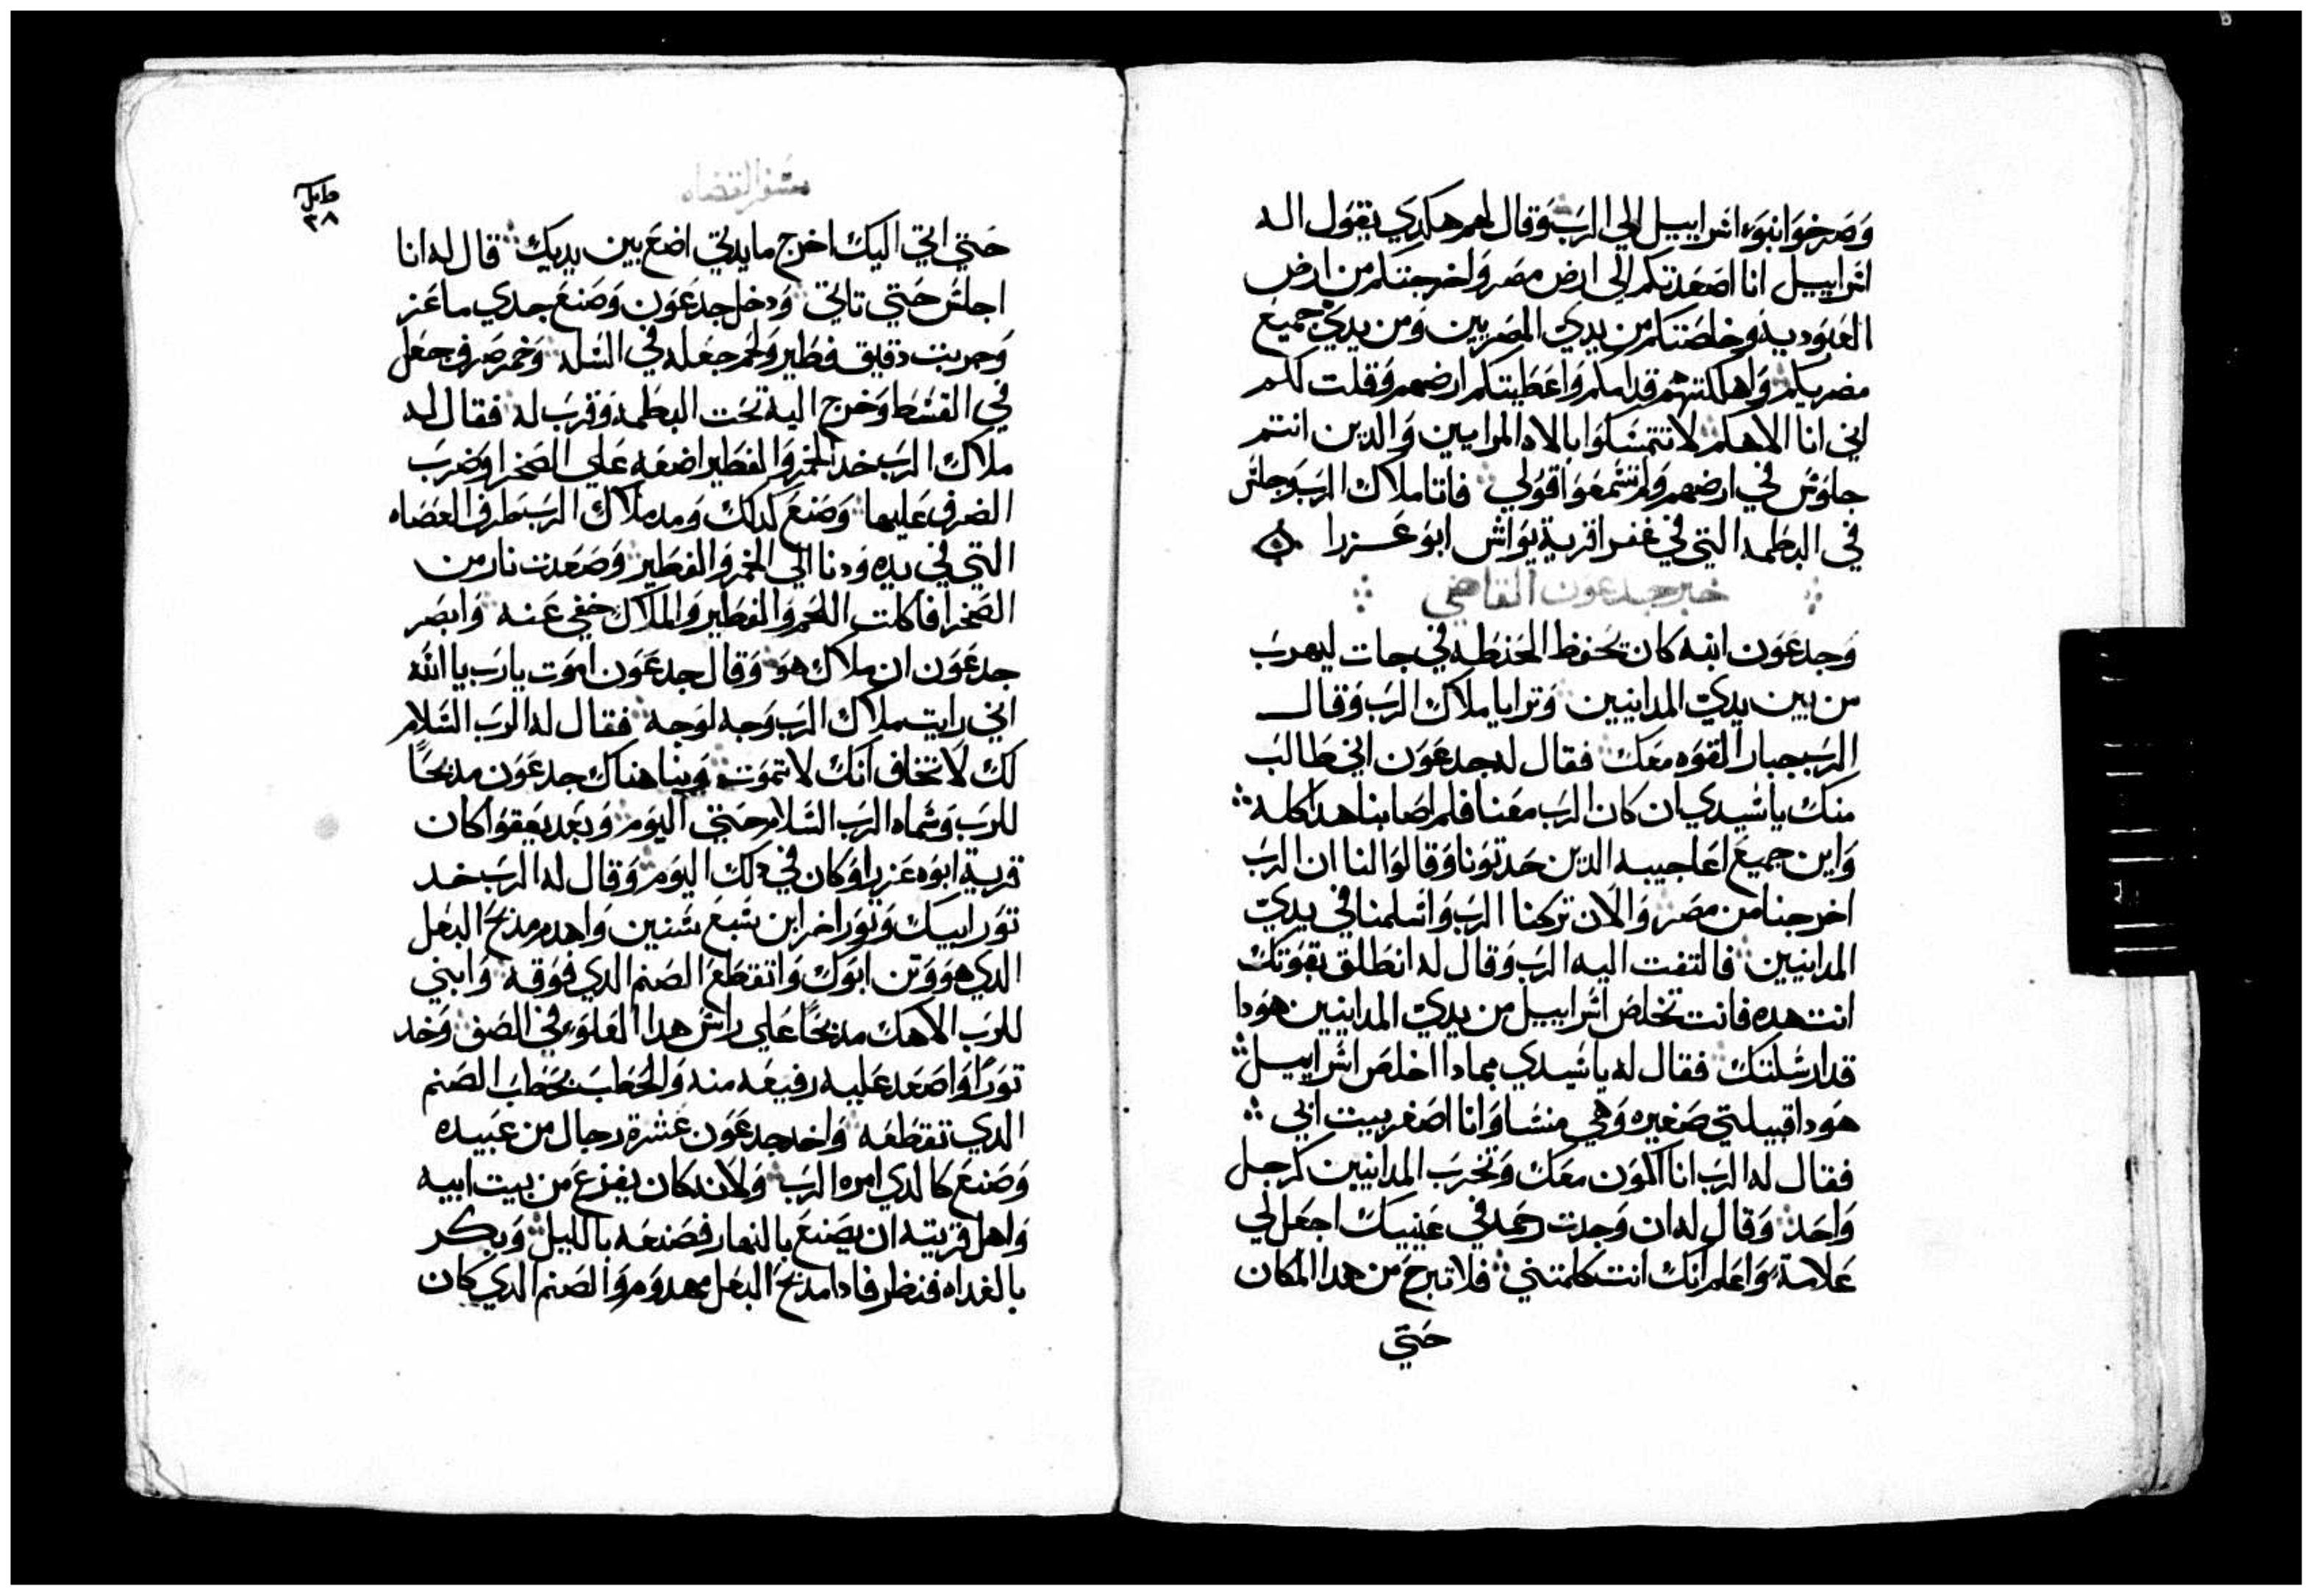 وصرخوا نبوء اسراييل الي الرب وقال لهم هكدي يقول اله
اسراييل انا اصعدتكم الي ارض مصر واخرجتكم من ارض
العبوديه وخلصتكم من يدي المصريين ومن يدي جميع
مضريكم واهلكتهم قدامكم واعطيتكم ارضهم وقلت لكم
اني انا الاهكم لا تتمسكوا بالاه المرايين والدين انتم
جلوس في ارضهم ولم تسمعوا قولي فاتا ملاك الرب وجلس
في البطمه التي في غفرا قرية يواش ابو عزرا
خبر جدعون القاضي
وجدعون ابنه كان يحفظ الحنطه في جات ليهرب
من بين يدي المدانيين وترايا ملاك الرب وقال
الرب جبار القوه معك فقال له جدعون اني طالب
منك يا سيدي ان كان الرب معنا فلم اصابنا هدا كله
واين جميع اعاجيبه الدين حدتونا وقالوا لنا ان الرب
اخرجنا من مصر والان تركنا الرب واسلمنا في يدي
المدانيين فالتفت اليه الرب وقال له انطلق بقوتك
انت هده فانت تخلص اسراييل من يدي المدانيين هودا
قد ارسلتك فقال له يا سيدي بمادا اخلص اسراييل
هودا قبيلتي صغيره وهي منسا وانا اصغر بيت ابي
فقال له الرب انا اكون معك وتخرب المدانيين كرجل
واحد وقال له ان وجدت رحمه في عينيك اجعل لي
علامة واعلم انك انت كلمتني فلا تبرح من هدا المكان
حتي
سفر القضاه
٣٨
حتي اتي اليك اخرج ما يدتي اضع بين يديك قال له انا
اجلس حتي تاتي ودخل جدعون وصنع جدي ماعز
وجريبت دقيق فطير ولحم جعله في السله وخمر صرف جعل
في القسط وخرج اليه تحت البطمه وقرب له فقال له
ملاك الرب خد الخمر والفطير اضعه علي الصخرا وضرب
الضرف عليها وصنع كدلك ومد ملاك الرب طرف العصاه
التي في يده ودنا الي الخمر والفطير وصعدت نار من
الصخرا فاكلت اللحم والفطير والملاك خفي عنه وابصر
جدعون ان ملاك هو وقال جدعون اموت يا رب يا الله
اني رايت ملاك الرب وجه لوجه فقال له الرب السلام
لك لا تخاف انك لا تموت وبنا هناك جدعون مدبحا
للرب وسماه الرب السلام حتي اليوم وبعد يعقوا كان
قرية ابوه عزرا وكان في دلك اليوم وقال له الرب خد
تور ابيك وتور اخر ابن سبع سنين واهدم مدبح البعل
الدي هو وتن ابوك واتقطع الصنم الدي فوقه وابني
للرب الاهك مدبحا علي راس هدا العلوء في الصف وخد
تورا واصعد عليه رفيعه منه والحطب بحطب الصنم
الدي تقطعه واخد جدعون عشرة رجال من عبيده
وصنع كالدي امره الرب ولانه كان يفزع من بيت ابيه
واهل قريته ان يصنع بالنهار فصنعه بالليل وبكر
بالغداه فنظر فادا مدبح البعل مهدوم والصنم الدي كان